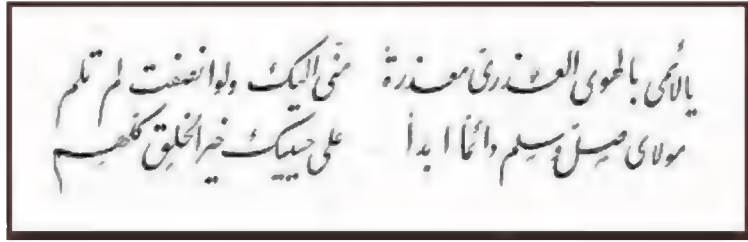 يا لائمي بالهوى العذري معذرة مني اليك ولو انصفت لم تلم
مولاي صل وسلم دائماً ابداً على حبيبك خير الخلق كلهم